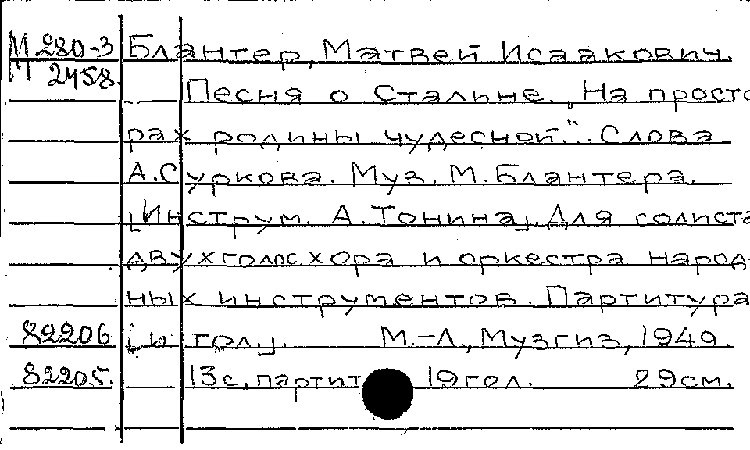 М 280-3 Блантер, Матвей Исаакович.
М 2458. Песня о Сталине. „На просто
рах родины чудесной". Слова
А. Суркова. Муз. М. Блантера.
[Инструм. А. Тонина]. Для солиста
двухголосн. хора и оркестра народ-
ных инструментов. Партитура
82206 [и гол.]. М.-Л., Музгиз, 1949.
82205. 13 с. партит 19 гол. 29 см.